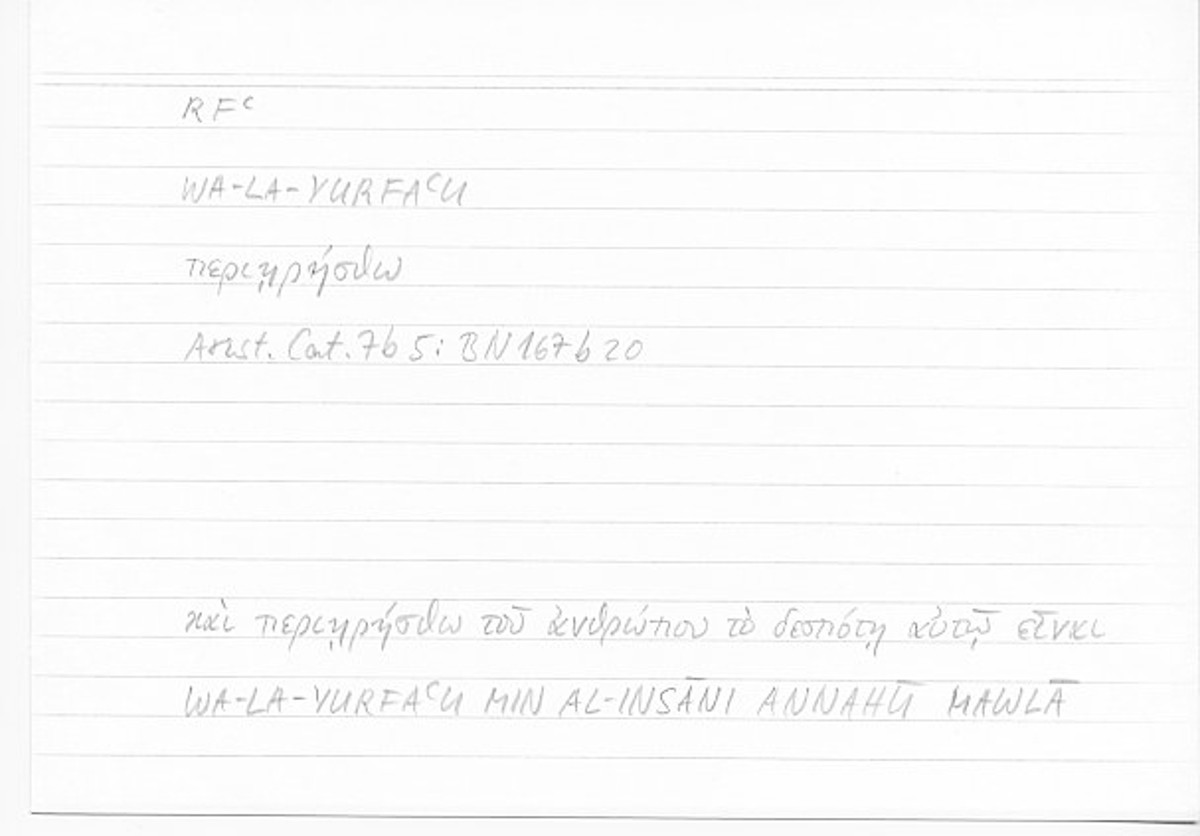 RFᶜ
WA-LA-YURFAᶜU
περιῃρήσθω
Arist. Cat. 7b 5; BN 167b 20
καὶ περιῃρήσθω τοῦ ἀνθρώπου τὸ δεσπότῃ αὐτῷ εἶναι
WA-LA-YURFAᶜU MIN AL-INSĀNI ANNAHŪ MAWLĀ